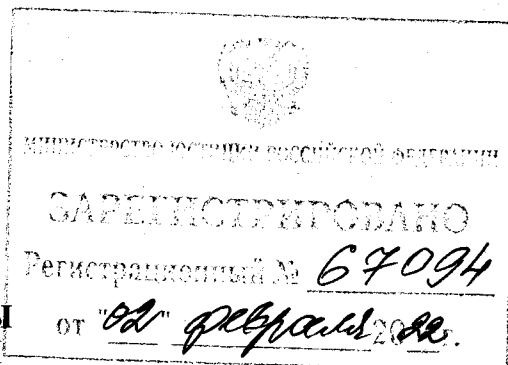 МИНИСТЕРСТВО ЮСТИЦИИ РОССИЙСКОЙ ФЕДЕРАЦИИ
ЗАРЕГИСТРИРОВАНО
Регистрационный № 67094
от "02" февраля 2022 г.